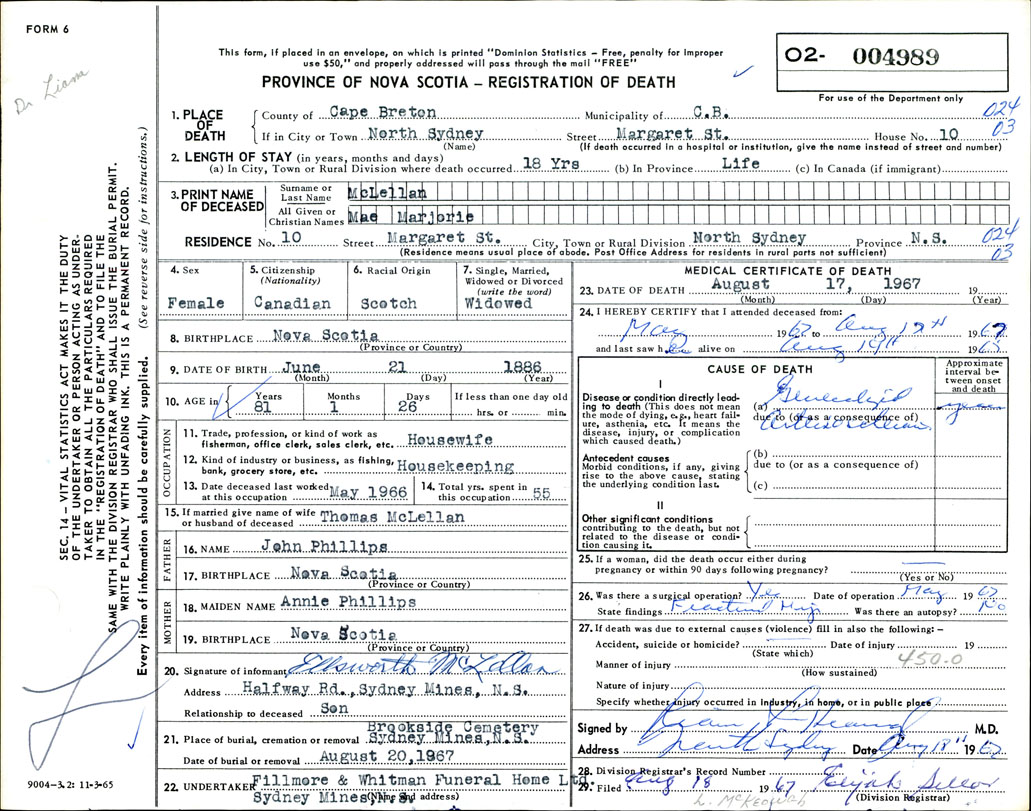 FORM 6
This form, if placed in an envelope, on which is printed "Dominion Statistics – Free, penalty for improper
use $50," and properly addressed will pass through the mail "FREE"
PROVINCE OF NOVA SCOTIA – REGISTRATION OF DEATH
02- 004989
For use of the Department only
SEC. 14 – VITAL STATISTICS ACT MAKES IT THE DUTY
OF THE UNDERTAKER OR PERSON ACTING AS UNDER-
TAKER TO OBTAIN ALL THE PARTICULARS REQUIRED
IN THE "REGISTRATION OF DEATH" AND TO FILE THE
SAME WITH THE DIVISION REGISTRAR WHO SHALL ISSUE THE BURIAL PERMIT.
WRITE PLAINLY WITH UNFADING INK. THIS IS A PERMANENT RECORD.
Every item of information should be carefully supplied. (See reverse side for instructions.)
1. PLACE OF DEATH
County of Cape Breton Municipality of C.B. 024
If in City or Town North Sydney Street Margaret St. House No. 10 03
(Name) (If death occurred in a hospital or institution, give the name instead of street and number)
2. LENGTH OF STAY (in years, months and days)
(a) In City, Town or Rural Division where death occurred 18 Yrs (b) In Province Life (c) In Canada (if immigrant)
3. PRINT NAME OF DECEASED
Surname or Last Name McLellan
All Given or Christian Names Mae Marjorie
RESIDENCE No. 10 Street Margaret St. City, Town or Rural Division North Sydney Province N.S. 024
(Residence means usual place of abode. Post Office Address for residents in rural parts not sufficient) 03
4. Sex
Female
5. Citizenship
(Nationality)
Canadian
6. Racial Origin
Scotch
7. Single, Married,
Widowed or Divorced
(write the word)
Widowed
8. BIRTHPLACE Nova Scotia
(Province or Country)
9. DATE OF BIRTH June 21 1886
(Month) (Day) (Year)
10. AGE in Years Months Days If less than one day old
81 1 26 hrs. or min.
OCCUPATION
11. Trade, profession, or kind of work as
fisherman, office clerk, sales clerk, etc. Housewife
12. Kind of industry or business, as fishing,
bank, grocery store, etc. Housekeeping
13. Date deceased last worked
at this occupation May 1966
14. Total yrs. spent in
this occupation 55
15. If married give name of wife
or husband of deceased Thomas McLellan
FATHER
16. NAME John Phillips
17. BIRTHPLACE Nova Scotia
(Province or Country)
MOTHER
18. MAIDEN NAME Annie Phillips
19. BIRTHPLACE Nova Scotia
(Province or Country)
20. Signature of informant Ellsworth McLellan
Address Halfway Rd., Sydney Mines, N.S.
Relationship to deceased Son
Brookside Cemetery
21. Place of burial, cremation or removal Sydney Mines, N.S.
Date of burial or removal August 20, 1967
22. UNDERTAKER Fillmore & Whitman Funeral Home Ltd.
Sydney Mines, N.S. (Name and address)
9004–3.2: 11-3-65
MEDICAL CERTIFICATE OF DEATH
23. DATE OF DEATH August 17, 1967 19
(Month) (Day) (Year)
24. I HEREBY CERTIFY that I attended deceased from:
May 1967 to Aug 17th 1967
and last saw her alive on Aug 1967
CAUSE OF DEATH
Approximate
interval be-
tween onset
and death
I
Disease or condition directly lead-
ing to death (This does not mean
the mode of dying, e.g., heart fail-
ure, asthenia, etc. It means the
disease, injury, or complication
which caused death.)
(a) Generalized
due to (or as a consequence of)
years
Antecedent causes
Morbid conditions, if any, giving
rise to the above cause, stating
the underlying condition last.
(b)
due to (or as a consequence of)
(c)
II
Other significant conditions
contributing to the death, but not
related to the disease or condi-
tion causing it.
25. If a woman, did the death occur either during
pregnancy or within 90 days following pregnancy?
(Yes or No)
26. Was there a surgical operation? Yes Date of operation May 1967
State findings Fractured Hip Was there an autopsy? No
27. If death was due to external causes (violence) fill in also the following: –
Accident, suicide or homicide? Date of injury 19
(State which) 450.0
Manner of injury
(How sustained)
Nature of injury
Specify whether injury occurred in industry, in home, or in public place?
Signed by M.D.
Address North Sydney Date Aug 18th 1967
28. Division Registrar's Record Number
29. Filed Aug 18 1967 Elijah Sellor
(Division Registrar)